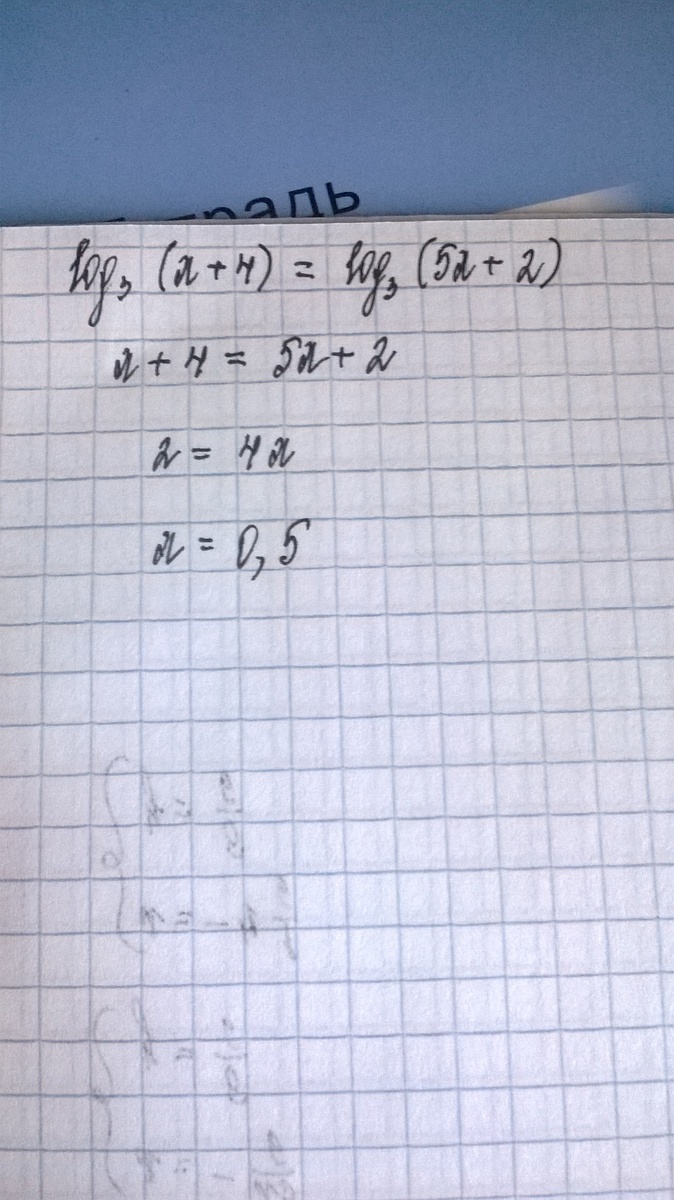 log₃ (x + 4) = log₃ (5x + 2)
x + 4 = 5x + 2
2 = 4x
x = 0,5